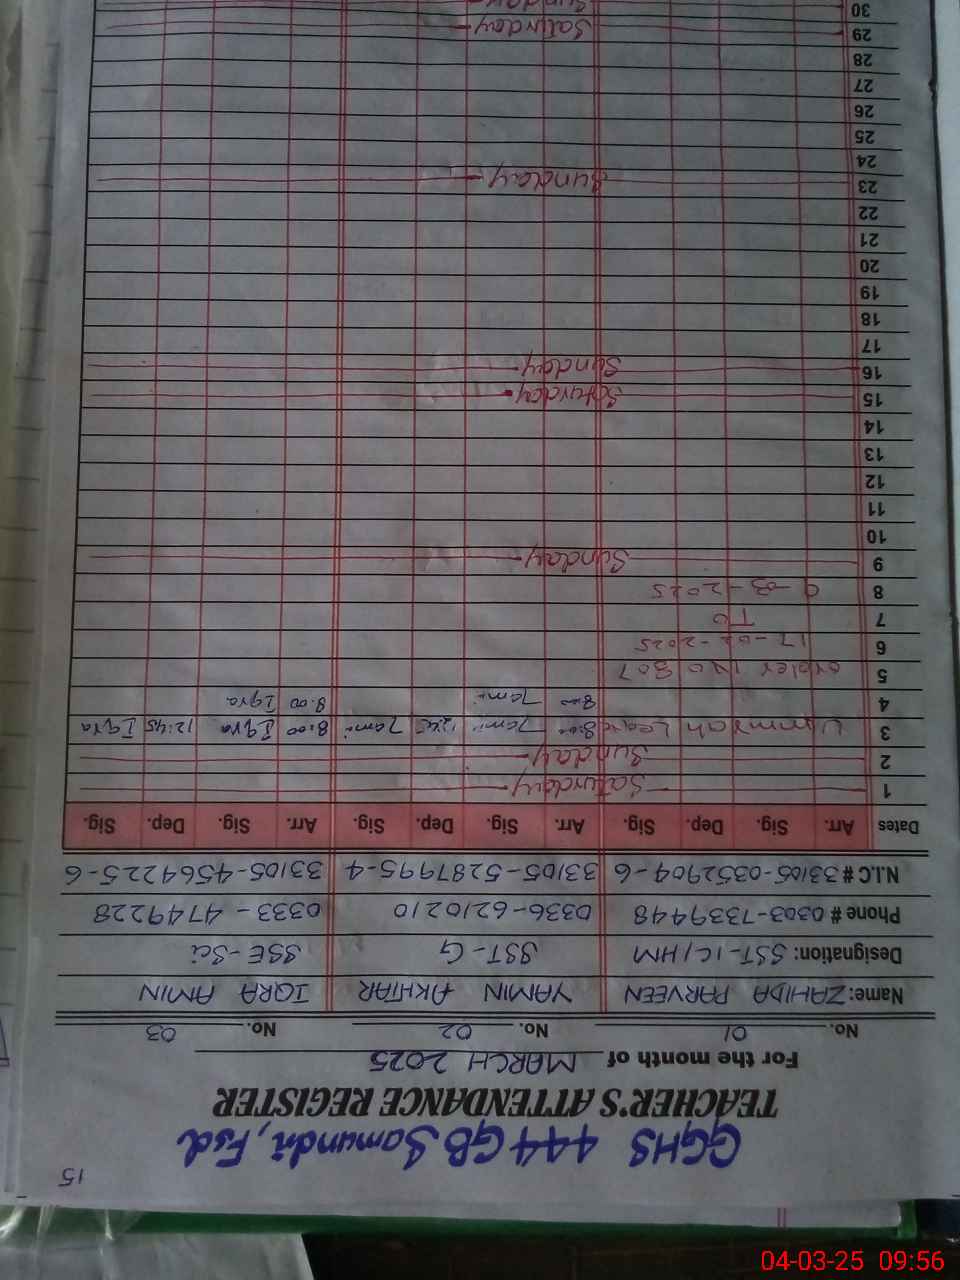 15
GGHS 444 GB Samundri, Fsd
TEACHER'S ATTENDANCE REGISTER
For the month of MARCH 2025
No. 01 No. 02 No. 03
Name: ZAHIDA PARVEEN YAMIN AKHTAR IQRA AMIN
Designation: SST-IC/HM SST-G SSE-Sci
Phone # 0303-7339448 0336-6210210 0333-4749228
N.I.C # 33105-0352904-6 33105-5287995-4 33105-4564225-6
Dates Arr. Sig. Dep. Sig. Arr. Sig. Dep. Sig. Arr. Sig. Dep. Sig.
1 Saturday
2 Sunday
3 Ummrah Leave 8:00 12:45 8:00 Iqra 12:45 Iqra
4 8:00 8:00 Iqra
5 order No 307
6 17-02-2025
7 TO
8 9-03-2025
9 Sunday
10
11
12
13
14
15 Saturday
16 Sunday
17
18
19
20
21
22
23 Sunday
24
25
26
27
28
29 Saturday
30 Sunday
04-03-25 09:56